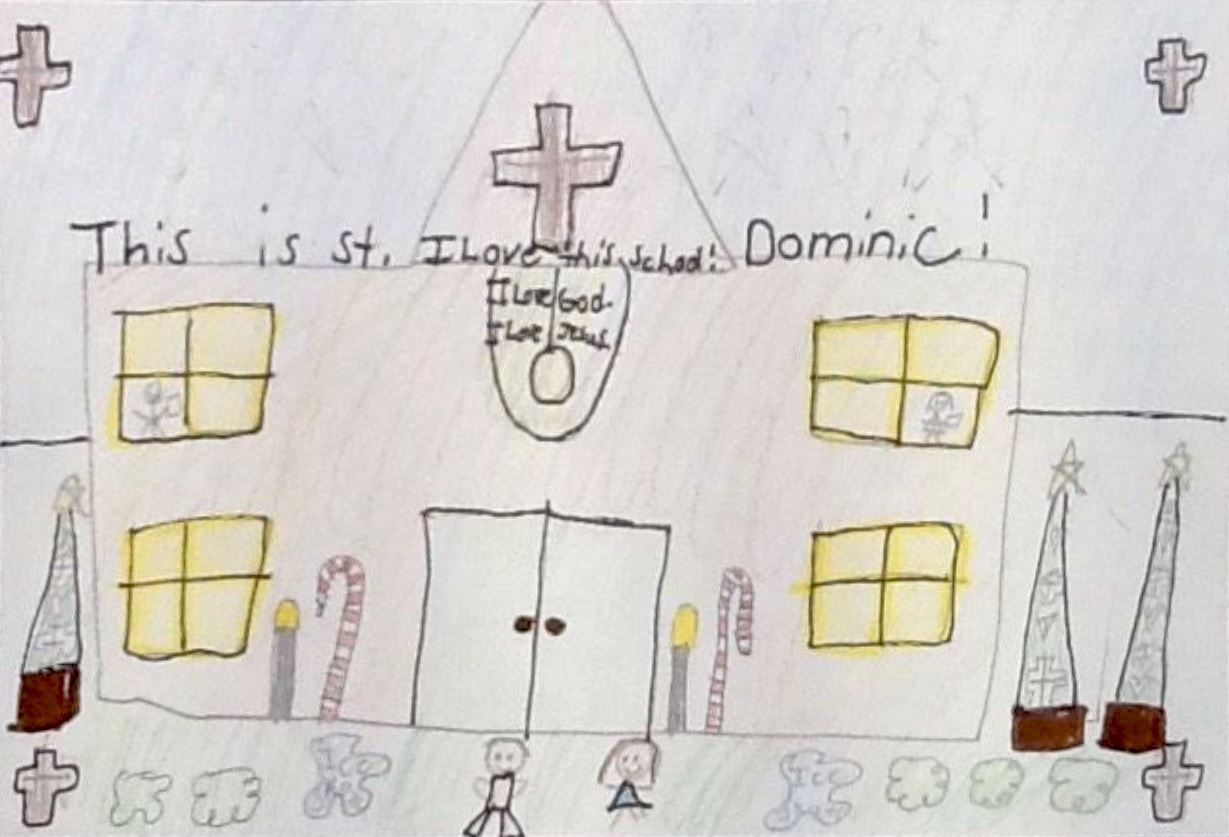 This is st. I Love this school! Dominic!
I Love God.
I Love Jesus.
Ice Ice